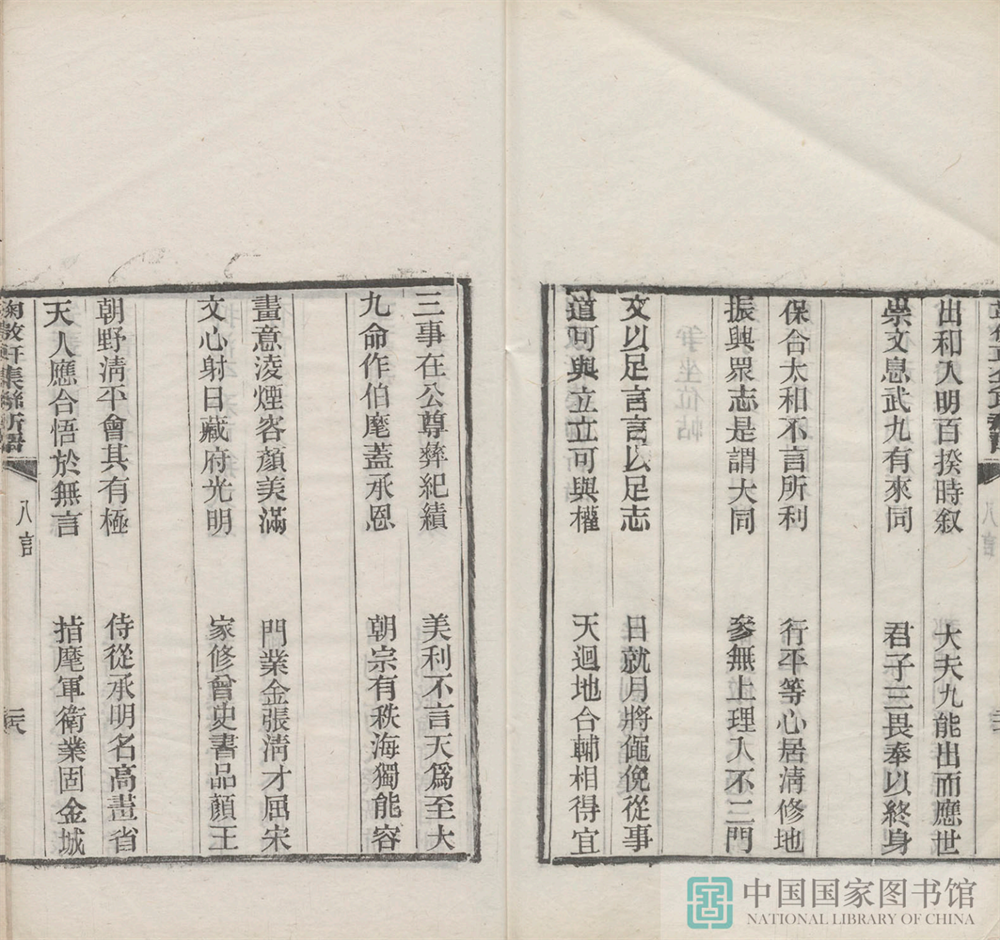 出和入明百揆時叙　大夫九能出而應世
崇文息武九有來同　君子三畏奉以終身
保合太和不言所利　行平等心居淸修地
振興眾志是謂大同　參無上理入不二門
文以足言言以足志　日就月將僶俛從事
道可與立立可與權　天迴地合輔相得宜
三事在公尊彝紀績　美利不言天爲至大
九命作伯麾蓋承恩　朝宗有秩海獨能容
畫意淩煙容顏美滿　門業金張淸才屈宋
文心射日藏府光明　家修曾史書品顏王
朝野淸平會其有極　侍從承明名高畫省
天人應合悟於無言　指麾軍衛業固金城
集聯新語　八言
中国国家图书馆
NATIONAL LIBRARY OF CHINA